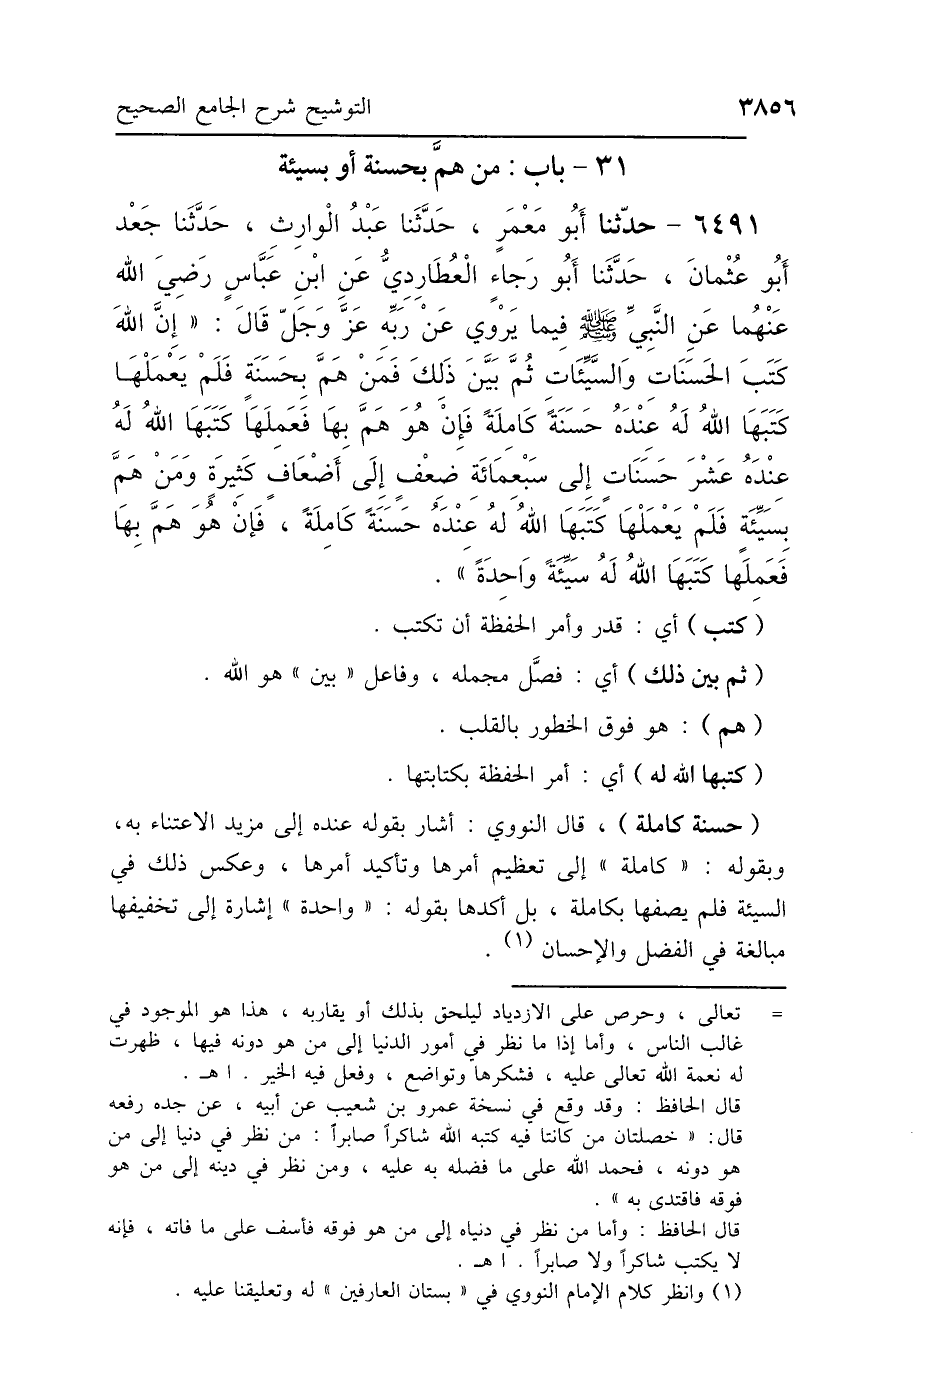 ٣٨٥٦ التوشيح شرح الجامع الصحيح
٣١ - باب : من همَّ بحسنة أو بسيئة
٦٤٩١ - حدّثنا أَبُو مَعْمَرٍ ، حَدَّثَنا عَبْدُ الْوارِثِ ، حَدَّثَنا جَعْد
أَبُو عُثْمانَ ، حَدَّثَنا أَبُو رَجاءٍ الْعُطارِدِيُّ عَنِ ابْنِ عَبَّاسٍ رَضِيَ الله
عَنْهُما عَنِ النَّبِيِّ ﷺ فِيما يَرْوِي عَنْ رَبِّهِ عَزَّ وَجَلّ قالَ : « إنَّ اللهَ
كَتَبَ الحَسَنَاتِ وَالسَّيِّئَاتِ ثُمَّ بَيَّنَ ذَلِكَ فَمَنْ هَمَّ بِحَسَنَةٍ فَلَمْ يَعْمَلْهَا
كَتَبَهَا اللهُ لَهُ عِنْدَهُ حَسَنَةً كَامِلَةً فَإِنْ هُوَ هَمَّ بِهَا فَعَمِلَهَا كَتَبَهَا اللهُ لَهُ
عِنْدَهُ عَشْرَ حَسَنَاتٍ إِلى سَبْعِمِائَةِ ضِعْفٍ إِلَى أَضْعَافٍ كَثِيرَةٍ وَمَنْ هَمَّ
بِسَيِّئَةٍ فَلَمْ يَعْمَلْهَا كَتَبَهَا اللهُ لهُ عِنْدَهُ حَسَنَةً كَامِلَةً ، فَإِنْ هُوَ هَمَّ بِهَا
فَعَمِلَها كَتَبَهَا اللهُ لَهُ سَيِّئَةً وَاحِدَةً » .
( كتب ) أي : قدر وأمر الحفظة أن تكتب .
( ثم بين ذلك ) أي : فصَّل مجمله ، وفاعل « بين » هو الله .
( هم ) : هو فوق الخطور بالقلب .
( كتبها الله له ) أي : أمر الحفظة بكتابتها .
( حسنة كاملة ) ، قال النووي : أشار بقوله عنده إلى مزيد الاعتناء به،
وبقوله : « كاملة » إلى تعظيم أمرها وتأكيد أمرها ، وعكس ذلك في
السيئة فلم يصفها بكاملة ، بل أكدها بقوله : « واحدة » إشارة إلى تخفيفها
مبالغة في الفضل والإحسان (١) .
= تعالى ، وحرص على الازدياد ليلحق بذلك أو يقاربه ، هذا هو الموجود في
غالب الناس ، وأما إذا ما نظر في أمور الدنيا إلى من هو دونه فيها ، ظهرت
له نعمة الله تعالى عليه ، فشكرها وتواضع ، وفعل فيه الخير . ا هـ .
قال الحافظ : وقد وقع في نسخة عمرو بن شعيب عن أبيه ، عن جده رفعه
قال: « خصلتان من كانتا فيه كتبه الله شاكراً صابراً : من نظر في دنيا إلى من
هو دونه ، فحمد الله على ما فضله به عليه ، ومن نظر في دينه إلى من هو
فوقه فاقتدى به » .
قال الحافظ : وأما من نظر في دنياه إلى من هو فوقه فأسف على ما فاته ، فإنه
لا يكتب شاكراً ولا صابراً . ا هـ .
(١) وانظر كلام الإمام النووي في « بستان العارفين » له وتعليقنا عليه .